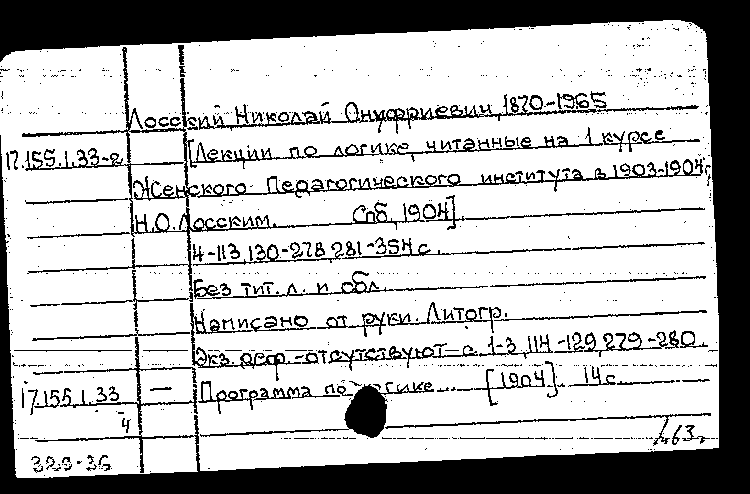 Лосский, Николай Онуфриевич, 1870-1965
17.155.1.33-а [Лекции по логике, читанные на 1 курсе
Женского Педагогического института в 1903-1904г.
Н.О. Лосским. Спб, 1904].
4-113,130-278,281-354 с.
Без тит. л. и обл.
Написано от руки. Литогр.
Экз. деф. - отсутствуют с. 1-3, 114-129, 279-280.
17.155.1.33 — Программа по логике... [1904]. 14 с.
4
329-36